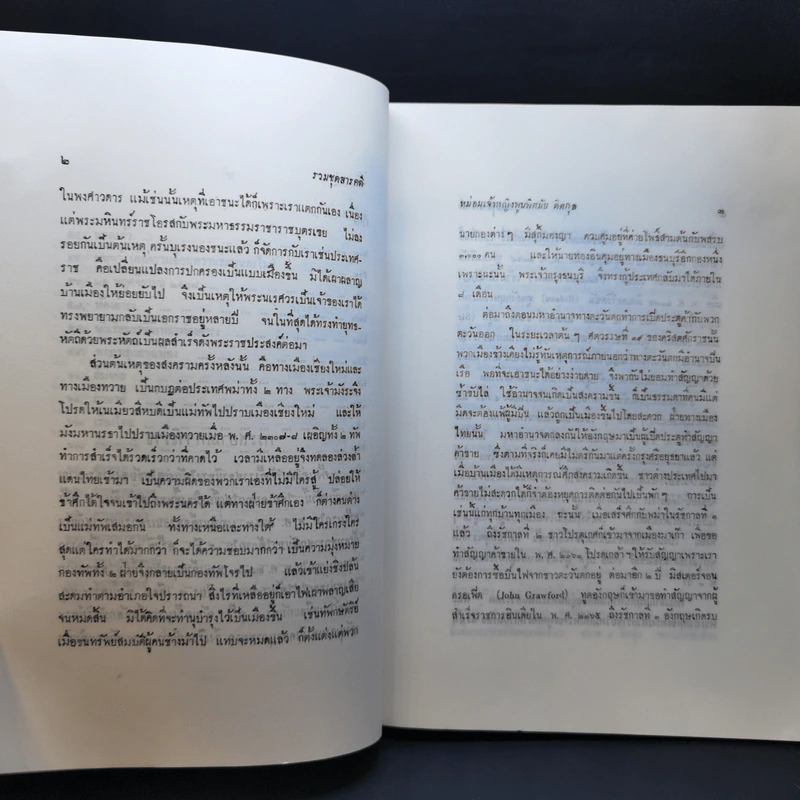 ๒
รวมชุดสารคดี
ในพงศาวดาร แม้เช่นนั้นเหตุที่เอาชนะได้ก็เพราะเราแตกกันเอง เนื่อง
แต่พระมหินทร์ราชโอรสกับพระมหาธรรมราชาราชบุตรเขย ไม่ลง
รอยกันเป็นต้นเหตุ ครั้นบุเรงนองชนะแล้ว ก็จัดการกับเราเช่นประเทศ-
ราช คือเปลี่ยนแปลงการปกครองเป็นแบบเมืองขึ้น มิได้เผาผลาญ
บ้านเมืองให้ย่อยยับไป จึงเป็นเหตุให้พระนเรศวรเป็นเจ้าของเราได้
ทรงพยายามกลับเป็นเอกราชอยู่หลายปี จนในที่สุดได้ทรงทำยุทธ-
หัตถีด้วยพระหัตถ์เป็นผลสำเร็จดังพระราชประสงค์ต่อมา
ส่วนต้นเหตุของสงครามครั้งหลังนั้น คือทางเมืองเชียงใหม่และ
ทางเมืองทวาย เป็นกบฏต่อประเทศพม่าทั้ง ๒ ทาง พระเจ้ามังระจึง
โปรดให้เนเมียวสีหบดีเป็นแม่ทัพไปปราบเมืองเชียงใหม่ และให้
มังมหานรธาไปปราบเมืองทวายเมื่อ พ. ศ. ๒๓๐๗-๘ เผอิญทั้ง ๒ ทัพ
ทำการสำเร็จได้รวดเร็วกว่าที่คาดไว้ เวลามีเหลืออยู่จึงทดลองล่วงล้ำ
แดนไทยเข้ามา เป็นความผิดของพวกเราเองที่ไม่มีใครสู้ ปล่อยให้
ข้าศึกได้ใจจนเข้าไปถึงพระนครได้ แต่ทางฝ่ายข้าศึกเอง ก็ต่างคนต่าง
เป็นแม่ทัพเสมอกัน ทั้งทางเหนือและทางใต้ ไม่มีใครเกรงใคร
สุดแต่ใครทำได้มากกว่า ก็จะได้ความชอบมากกว่า เป็นความมุ่งหมาย
กองทัพทั้ง ๒ ฝ่ายจึงกลายเป็นกองทัพโจรไป แล้วเข้าแย่งชิงปล้น
สะดมทำตามอำเภอใจปรารถนา สิ่งไรที่เหลืออยู่ก็เอาไฟเผาผลาญเสีย
จนหมดสิ้น มิได้คิดที่จะทำนุบำรุงไว้เป็นเมืองขึ้น เช่นทัพกษัตริย์
เมื่อขนทรัพย์สมบัติผู้คนช้างม้าไป แทบจะหมดแล้ว ก็ตั้งแต่งแต่พวก
หม่อมเจ้าหญิงพูนพิศมัย ดิศกุล
๓
นายกองต่าง ๆ มีสุกี้มองญา ควบคุมอยู่ที่ค่ายโพธิ์สามต้นกับพลรบ
คน และให้นายทองอินคุมอยู่ทางเมืองธนบุรีอีกกองหนึ่ง
เพราะฉะนั้น พระเจ้ากรุงธนบุรี จึงทรงกู้ประเทศกลับมาได้ภายใน
๘ เดือน
ต่อมาถึงตอนมหาอำนาจทางตะวันตกทำการเปิดประตูค้ากับพวก
ตะวันออก ในระยะเวลาต้น ๆ ศตวรรษที่ ๑๙ ของคริสตศักราชนั้น
พวกเมืองข้างเคียงไม่รู้ทันเหตุการณ์ภายนอกว่าทางตะวันตกมีอำนาจปืน
เรือ พอที่จะเอาชนะได้อย่างง่ายดาย จึงพากันไม่ยอมทำสัญญาด้วย
ซ้ำขับไล่ ใช้อำนาจจนเกิดเป็นสงครามขึ้น ก็เป็นธรรมดาที่คนมีแต่
มีดจะต้องแพ้ผู้มีปืน แล้วถูกเป็นเมืองขึ้นไปโดยสะดวก ฝ่ายทางเมือง
ไทยนั้น มหาอำนาจตกลงกันให้อังกฤษมาเป็นผู้เปิดประตูทำสัญญา
ค้าขาย ซึ่งตามที่จริงก็เคยมีไมตรีกันมาแล้วแต่ครั้งกรุงศรีอยุธยาแล้ว แต่
เมื่อบ้านเมืองได้มีเหตุการณ์ศึกสงครามเกิดขึ้น ชาวต่างประเทศไปมา
ค้าขายไม่สะดวกได้ก็จำต้องหยุดการติดต่อกันไปเป็นพัก ๆ การเป็น
เช่นนี้แก่ทุกบ้านทุกเมือง ฉะนั้น เมื่อเสร็จศึกกับพม่าในรัชกาลที่ ๑
แล้ว ถึงรัชกาลที่ ๒ ชาวโปรตุเกศก็เข้ามาจากเมืองมาเก๊า เพื่อขอ
ทำสัญญาค้าขายใน พ. ศ. ๒๓๖๑ โปรดเกล้า ฯ ให้รับสัญญาเพราะเรา
ยังต้องการซื้อปืนไฟจากชาวตะวันตกอยู่ ต่อมาอีก ๒ ปี มิสเตอร์จอน
ครอเฟิด (John Grawford) ทูตอังกฤษก็เข้ามาขอทำสัญญาจากผู้
สำเร็จราชการอินเดียใน พ. ศ. ๒๓๖๕ ถึงรัชกาลที่ ๓ อังกฤษเกิดรบ